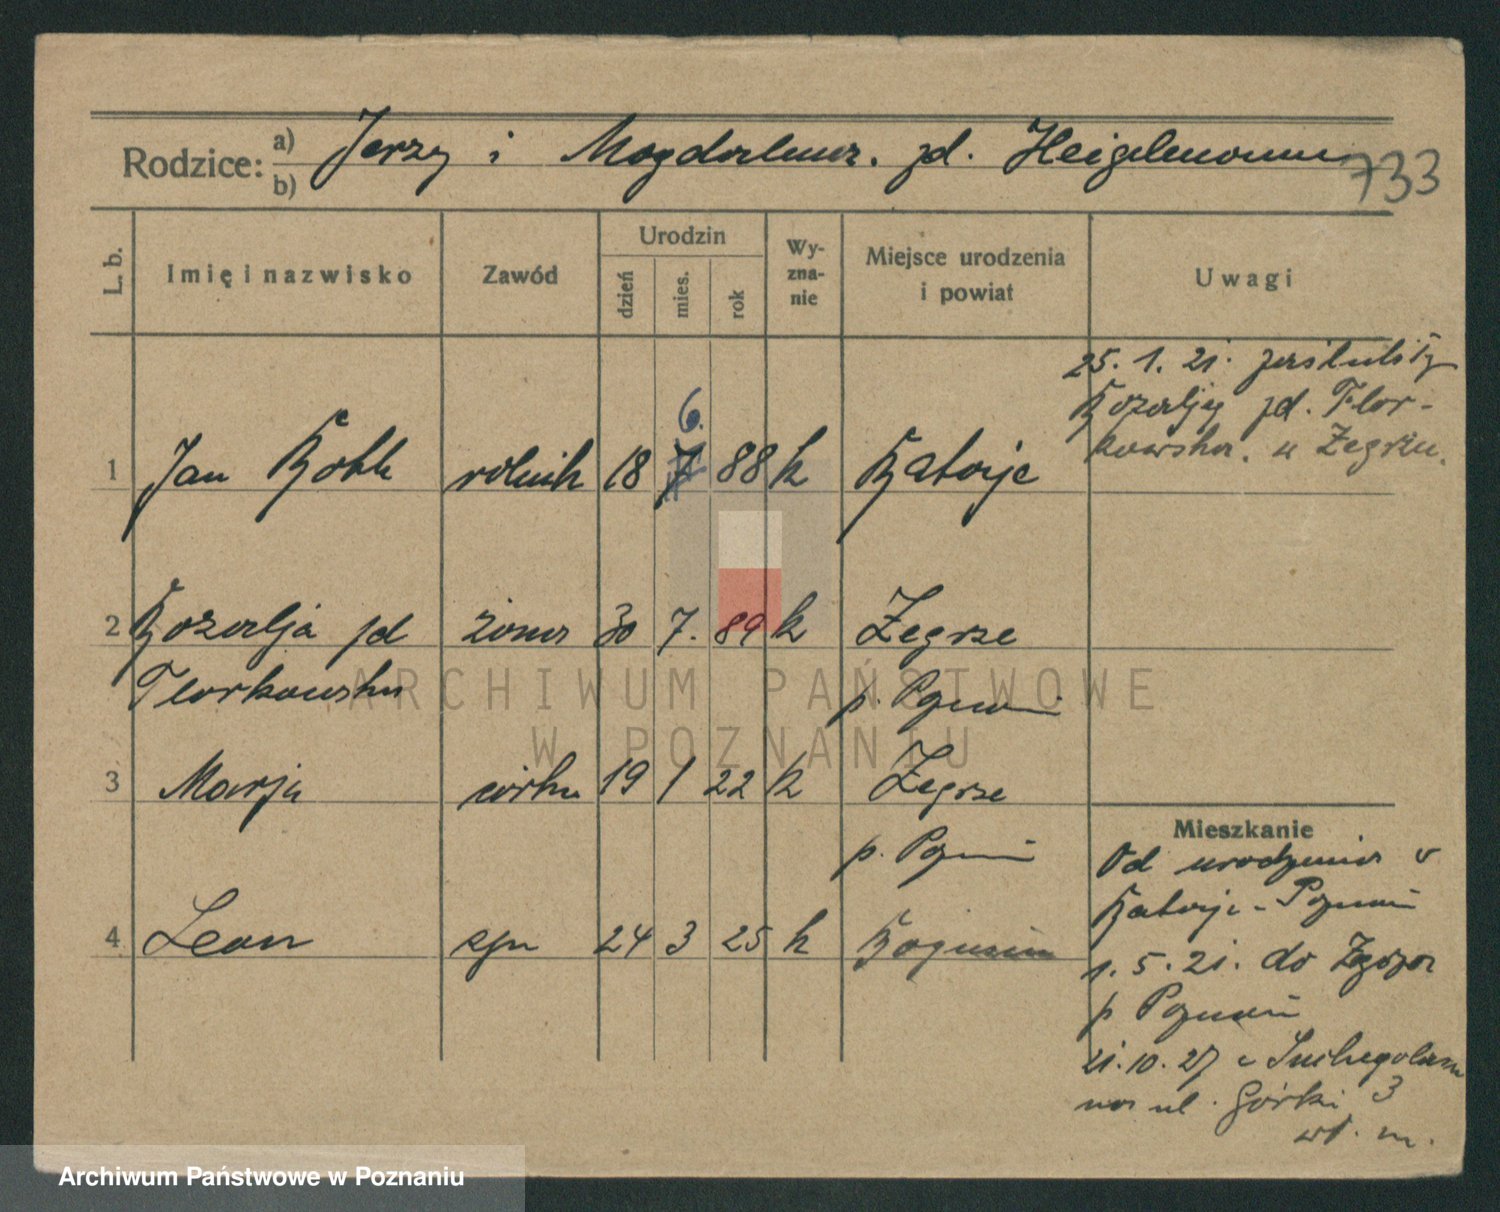 Rodzice: a) b) Jerzy i Magdalena zd. Heigelmann
733
L. b.
Imię i nazwisko
Zawód
Urodzin
dzień
mies.
rok
Wy-
zna-
nie
Miejsce urodzenia
i powiat
Uwagi
25. 1. 21.
Rozalję zd. Flor-
kowska. w Żegrzu.
1 Jan rolnik 18 6. 88 k Rataje
2 Rozalja zd żona 30 7. 89 k Żegrze
Florkowska p. Poznań
3 Marja córka 19 1 22 k Żegrze
p. Poznań
4 Leon syn 24 3 25 k
Mieszkanie
Od urodzenia w
Rataje - Poznań
1. 5. 21. do Żegrza
p Poznań
21. 10. 27
na ul. Górki 3
wł. m.
ARCHIWUM PAŃSTWOWE
W POZNANIU
Archiwum Państwowe w Poznaniu